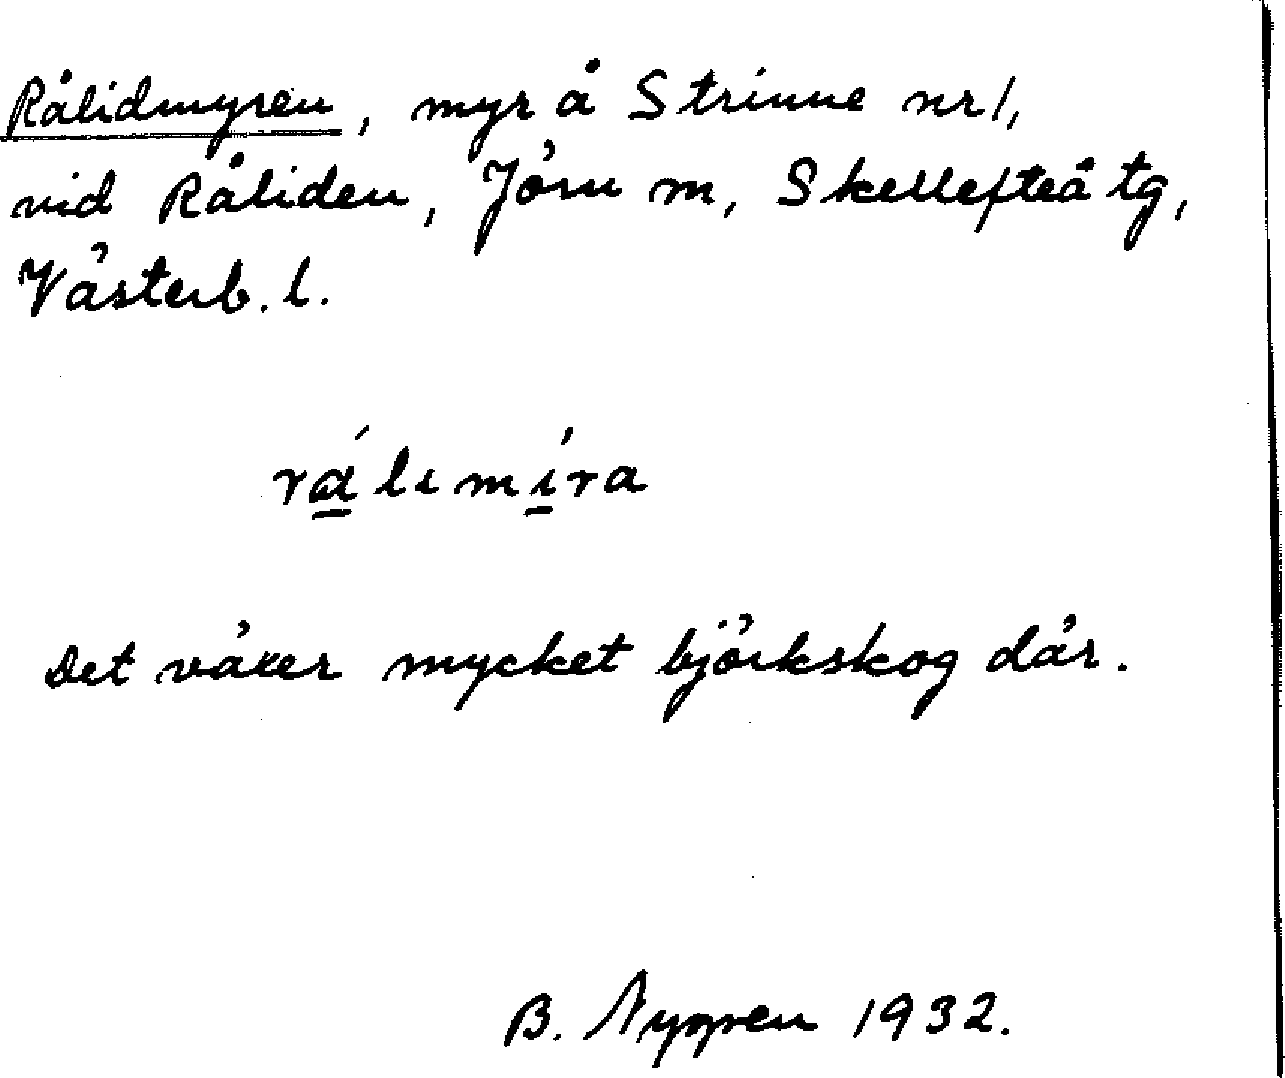 Rålidmyren, myr å Strinne nr 1,
vid Råliden, Jörn m, Skellefteå tg,
Västerb. l.
rálımíra
Det växer mycket björkskog där.
B. Nygren 1932.